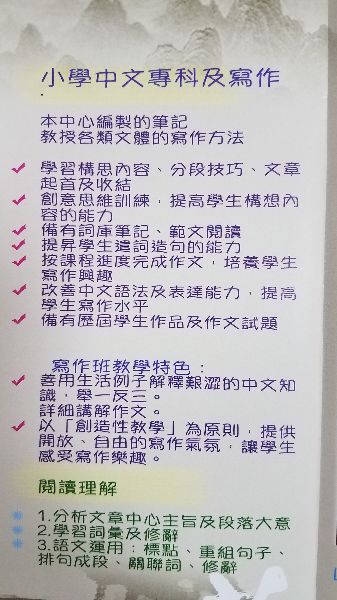 小學中文專科及寫作
本中心編製的筆記
教授各類文體的寫作方法
學習構思內容、分段技巧、文章
起首及收結
創意思維訓練，提高學生構想內
容的能力
備有詞庫筆記、範文閱讀
提昇學生遣詞造句的能力
按課程進度完成作文，培養學生
寫作興趣
改善中文語法及表達能力，提高
學生寫作水平
備有歷屆學生作品及作文試題
寫作班教學特色：
善用生活例子解釋艱澀的中文知
識，舉一反三。
詳細講解作文。
以「創造性教學」為原則，提供
開放、自由的寫作氣氛，讓學生
感受寫作樂趣。
閱讀理解
1.分析文章中心主旨及段落大意
2.學習詞彙及修辭
3.語文運用：標點、重組句子、
排句成段、關聯詞、修辭